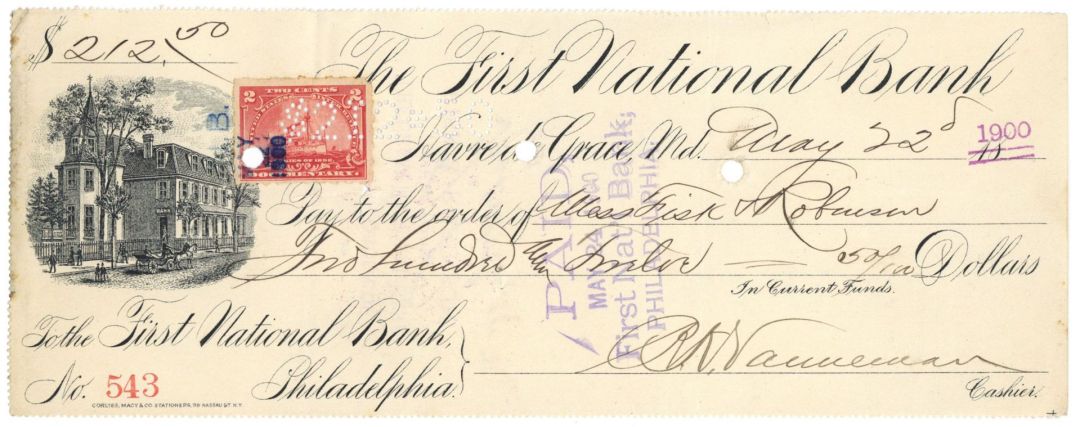 $ 212.50
The First National Bank
Havre de Grace Md. May 22d 1900
Pay to the order of Mess Fisk & Robinson
Two Hundred and Twelve — 50/100 Dollars
In Current Funds.
To the First National Bank,
Philadelphia.
No. 543
R.H. Vanneman
Cashier.
CORLIES, MACY & CO. STATIONERS, NASSAU ST. N.Y.
2 TWO CENTS 2
DOCUMENTARY.
PAID
MAY 24 00
First Nat. Bank,
PHILADELPHIA